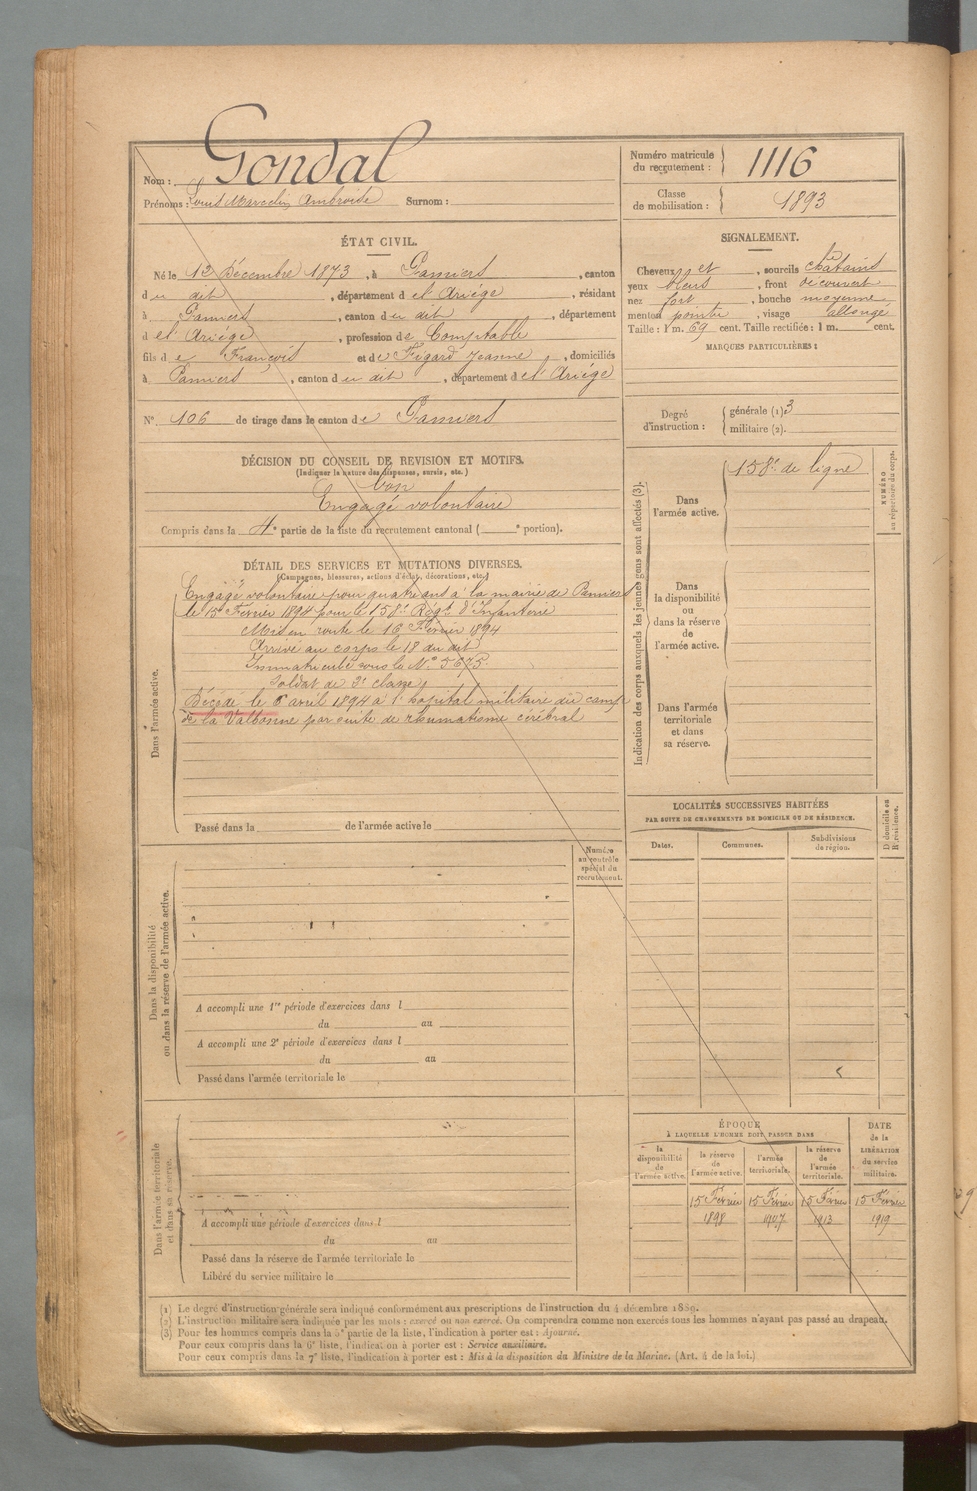 Nom : Gondal
Prénoms : Louis Marcelin Ambroise Surnom :
Numéro matricule du recrutement : 1116
Classe de mobilisation : 1893
ÉTAT CIVIL.
Né le 12 Décembre 1873, à Pamiers, canton
du dit, département de l'Ariége, résidant
à Pamiers, canton du dit, département
de l'Ariége, profession de Comptable
fils de François et de Figard Jeanne, domiciliés
à Pamiers, canton du dit, département de l'Ariége
N° 106 de tirage dans le canton de Pamiers
SIGNALEMENT.
Cheveux et, sourcils chatains
yeux bleus, front découvert
nez fort, bouche moyenne
menton pointu, visage allongé
Taille : 1 m. 69 cent. Taille rectifiée : 1 m. cent.
MARQUES PARTICULIÈRES :
Degré d'instruction :
générale (1) 3
militaire (2).
DÉCISION DU CONSEIL DE REVISION ET MOTIFS.
(Indiquer la nature des dispenses, sursis, etc.)
bon
Engagé volontaire
Compris dans la 4e partie de la liste du recrutement cantonal ( e portion).
DÉTAIL DES SERVICES ET MUTATIONS DIVERSES.
(Campagnes, blessures, actions d'éclat, décorations, etc.)
Dans l'armée active.
Engagé volontaire pour quatre ans à la mairie de Pamiers
le 15 Février 1894 pour le 158e Régt d'Infanterie
Mis en route le 16 Février 1894
Arrivé au corps le 18 du dit
Immatriculé sous le N° 5675
Soldat de 2e classe
Décédé le 6 avril 1894 à l'hopital militaire du camp
de la Valbonne par suite de rhumatisme cérébral
Passé dans la de l'armée active le
Indication des corps auxquels les jeunes gens sont affectés (3).
NUMÉRO au répertoire du corps.
Dans l'armée active.
158e de ligne
Dans la disponibilité ou dans la réserve de l'armée active.
Dans l'armée territoriale et dans sa réserve.
LOCALITÉS SUCCESSIVES HABITÉES
PAR SUITE DE CHANGEMENTS DE DOMICILE OU DE RÉSIDENCE.
Dates. Communes. Subdivisions de région. D domicile ou R résidence.
Dans la disponibilité ou dans la réserve de l'armée active.
Numéro au contrôle spécial du recrutement.
A accompli une 1re période d'exercices dans l
du au
A accompli une 2e période d'exercices dans l
du au
Passé dans l'armée territoriale le
Dans l'armée territoriale et dans sa réserve.
A accompli une période d'exercices dans l
du au
Passé dans la réserve de l'armée territoriale le
Libéré du service militaire le
ÉPOQUE
À LAQUELLE L'HOMME DOIT PASSER DANS
la disponibilité de l'armée active.
la réserve de l'armée active.
l'armée territoriale.
la réserve de l'armée territoriale.
DATE de la LIBÉRATION du service militaire.
15 Février 15 Février 15 Février 15 Février
1898 1907 1913 1919
(1) Le degré d'instruction générale sera indiqué conformément aux prescriptions de l'instruction du 4 décembre 1889.
(2) L'instruction militaire sera indiquée par les mots : exercé ou non exercé. On comprendra comme non exercés tous les hommes n'ayant pas passé au drapeau.
(3) Pour les hommes compris dans la 5e partie de la liste, l'indication à porter est : Ajourné.
Pour ceux compris dans la 6e liste, l'indication à porter est : Service auxiliaire.
Pour ceux compris dans la 7e liste, l'indication à porter est : Mis à la disposition du Ministre de la Marine. (Art. 4 de la loi.)